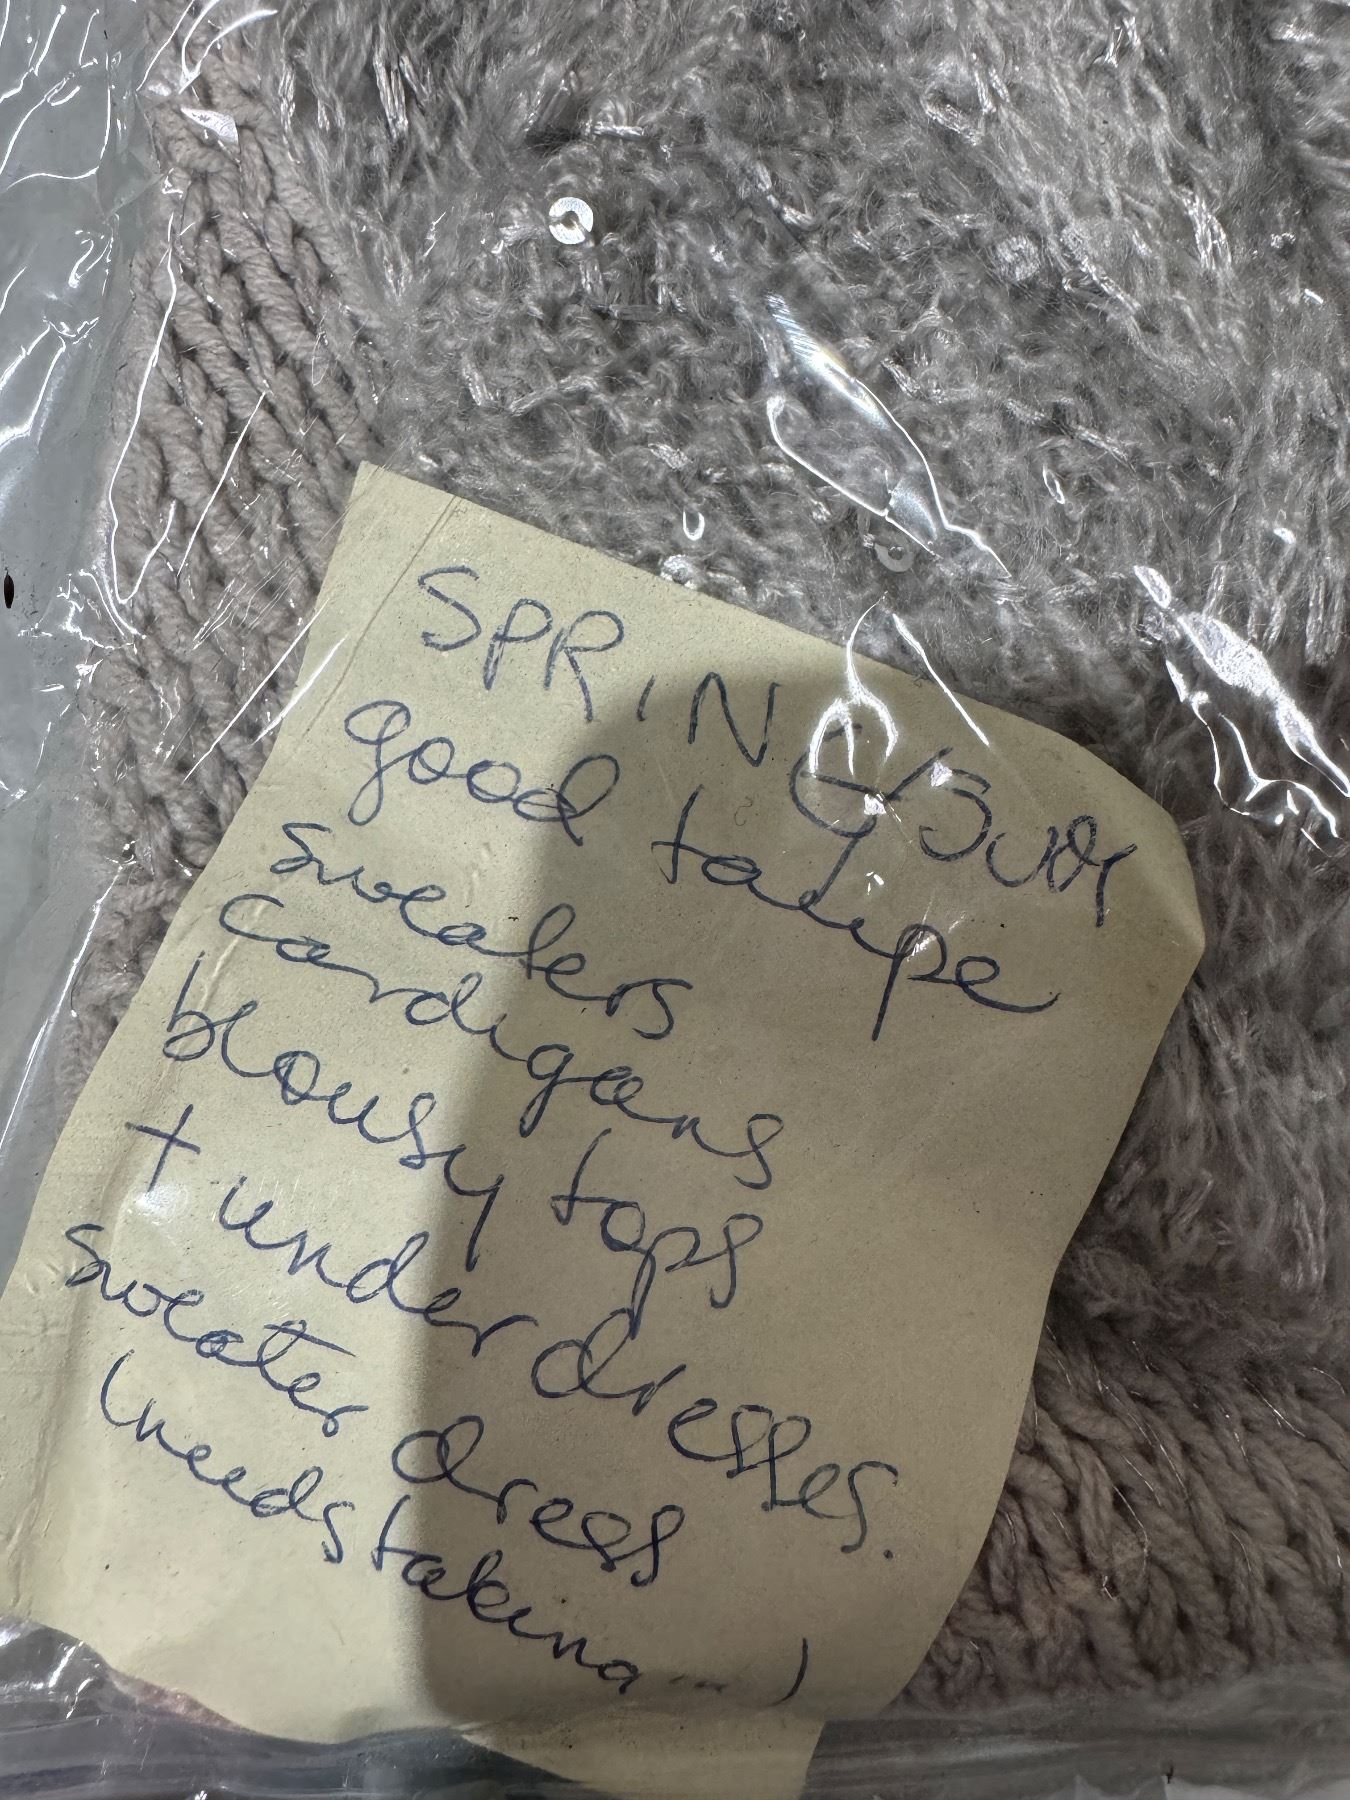 SPRING/SUM
good taupe
sweaters
cardigans
blousy tops
+ underdresses.
sweater dress
(needs taking ...)